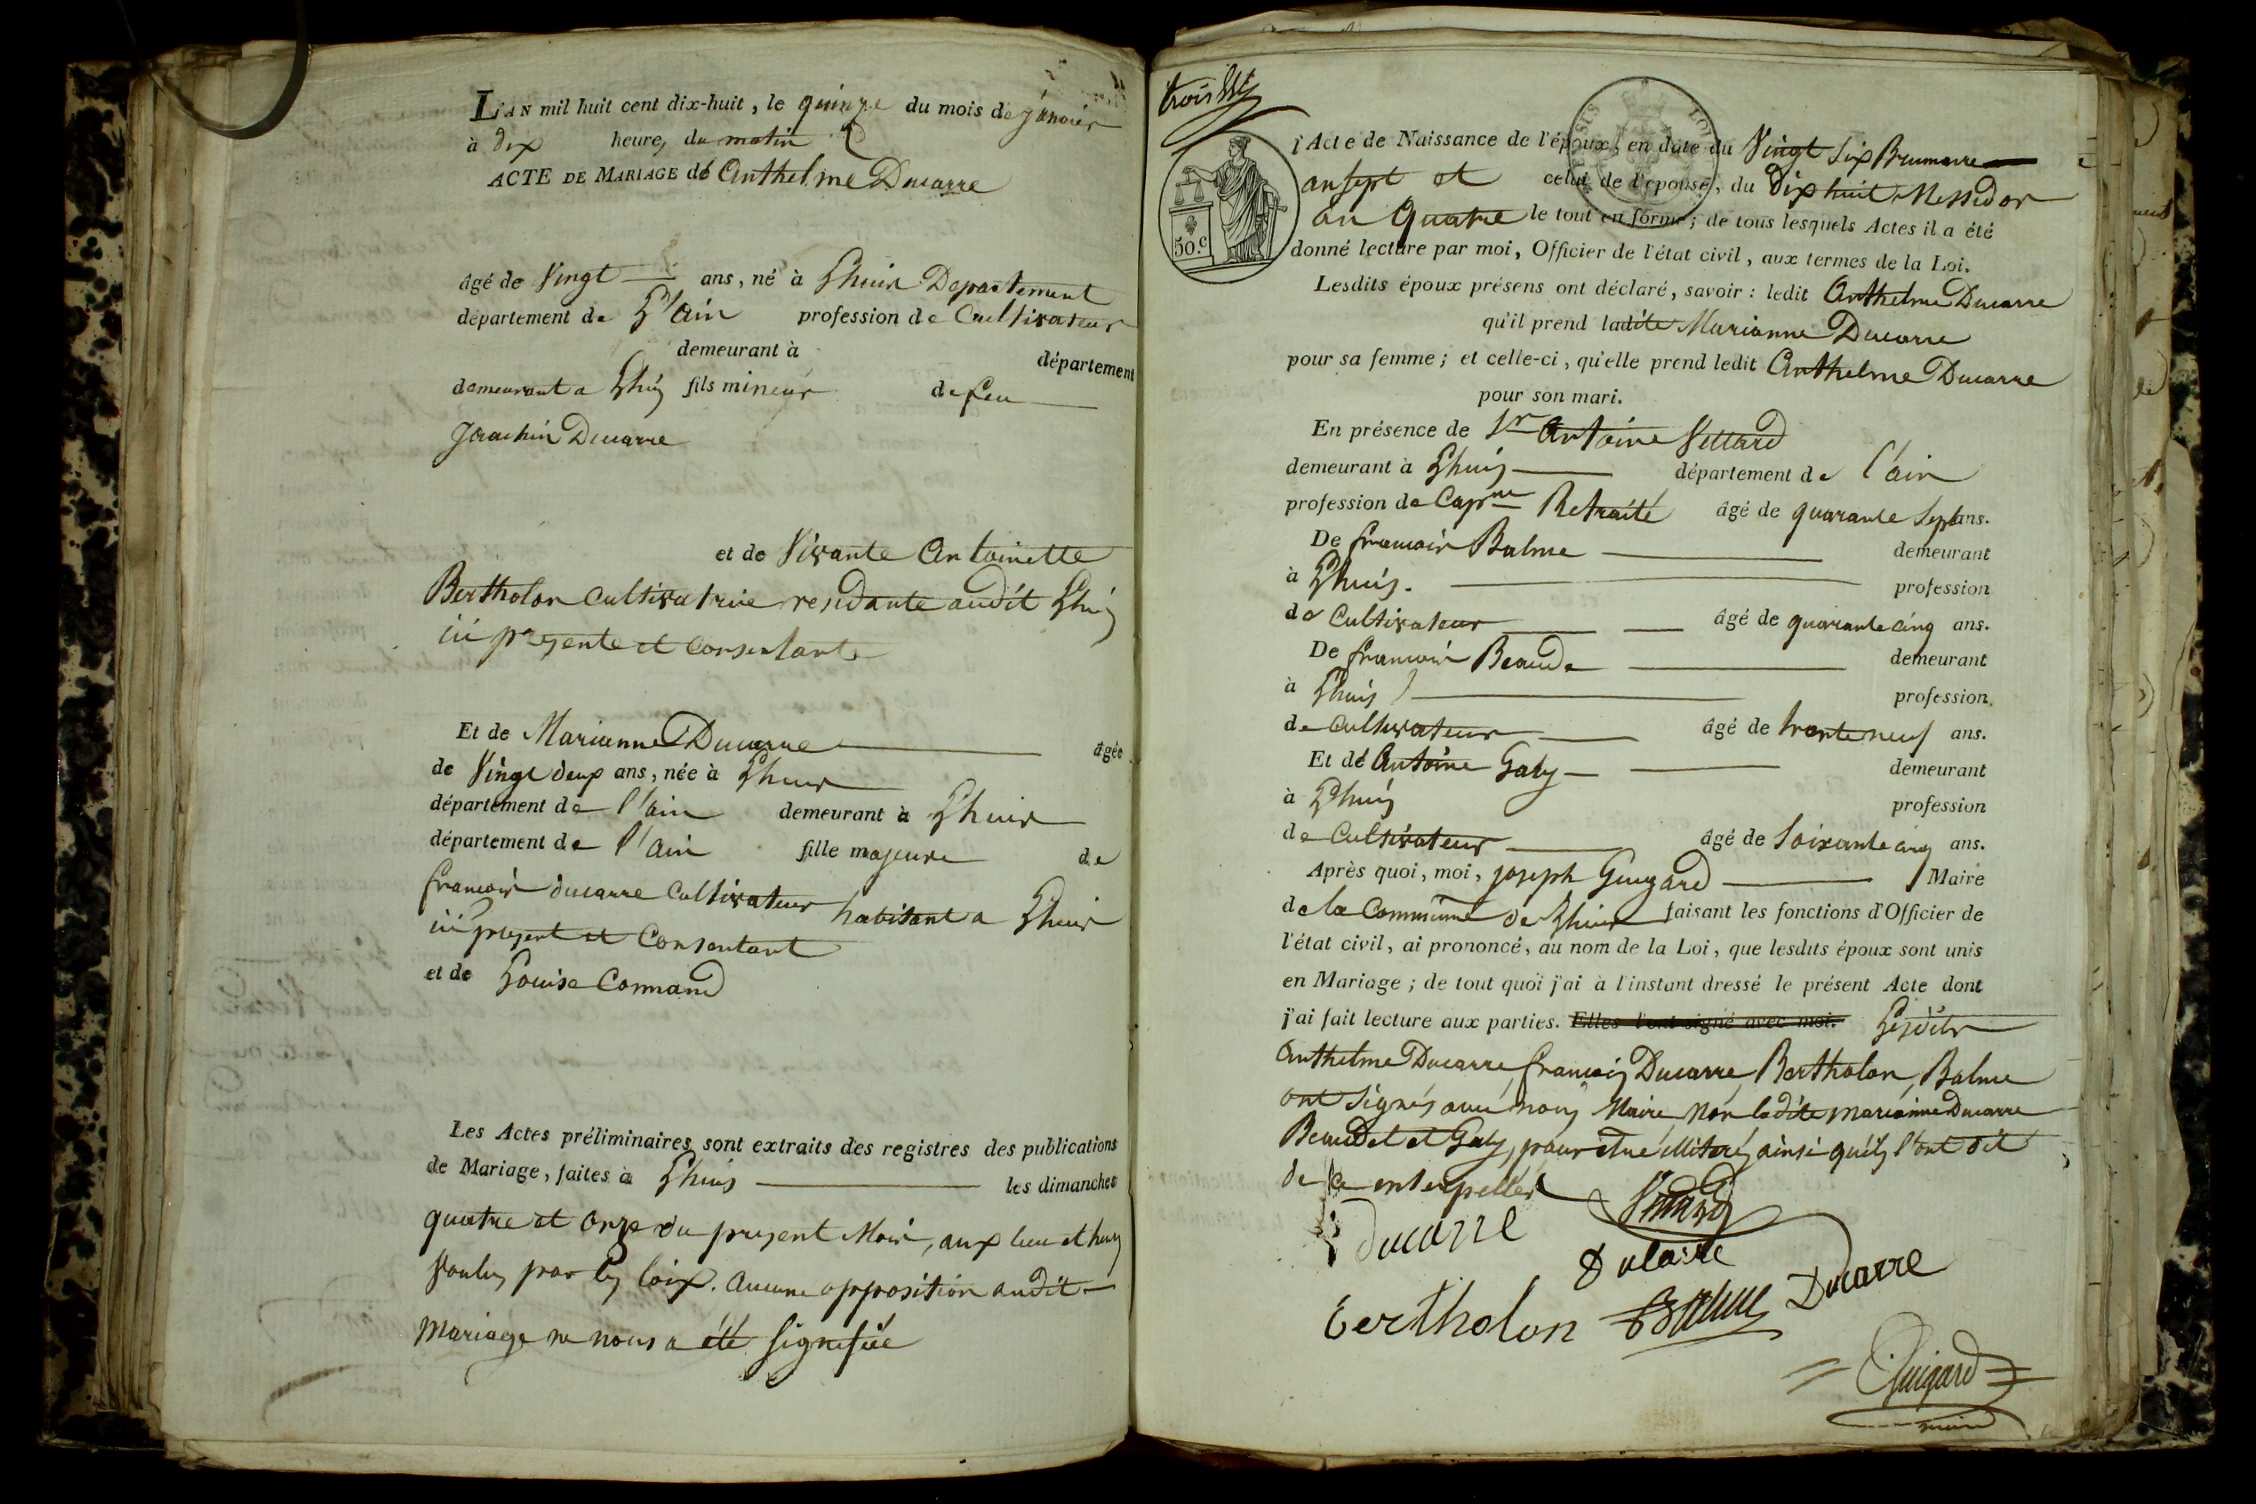 L'AN mil huit cent dix-huit, le quinze du mois de janvier
à dix heures du matin
ACTE DE MARIAGE de Anthelme Ducarre
âgé de Vingt ans, né à Lhuis Departement
département de L'ain profession de Cultivateur
demeurant à département
demeurant a Lhuis fils mineur de feu
Joachin Ducarre
et de Vivante Antoinette
Bertholon Cultivatrice residante audit Lhuis
ici presente et consentante
Et de Marianne Ducarre âgée
de Vingt deux ans, née à Lhuis
département de l'ain demeurant à Lhuis
département de l'ain fille majeure de
francois ducarre Cultivateur habitant a Lhuis
ici present et Consentant
et de Louise Connand
Les Actes préliminaires sont extraits des registres des publications
de Mariage, faites à Lhuis les dimanches
quatre et onze du present Mois, aux lieu et heures
Voulus par les loix. aucune opposition audit
Mariage ne nous a été signifiée
l'Acte de Naissance de l'époux, en date du Vingt Six Brumaire
an sept et celui de l'épouse, du dix huit Messidor
an quatre le tout en forme; de tous lesquels Actes il a été
50.c donné lecture par moi, Officier de l'état civil, aux termes de la Loi.
Lesdits époux présens ont déclaré, savoir : ledit Anthelme Ducarre
qu'il prend ladite Marianne Ducarre
pour sa femme; et celle-ci, qu'elle prend ledit Anthelme Ducarre
pour son mari.
En présence de Sr Antoine Vettard
demeurant à Lhuis département de l'ain
profession de Capne Retraité âgé de quarante Sept ans.
De francois Balme demeurant
à Lhuis. profession
de Cultivateur âgé de quarante cinq ans.
De francois Beaude demeurant
à Lhuis profession
de cultivateur âgé de trente neuf ans.
Et de Antoine Galy demeurant
à Lhuis profession
de Cultivateur âgé de Soixante cinq ans.
Après quoi, moi, joseph Guigard Maire
de la Commune de Lhuis faisant les fonctions d'Officier de
l'état civil, ai prononcé, au nom de la Loi, que lesdits époux sont unis
en Mariage; de tout quoi j'ai à l'instant dressé le présent Acte dont
j'ai fait lecture aux parties. Elles l'ont signé avec moi. Lesdits
Anthelme Ducarre, francois Ducarre, Bertholon, Balme
ont signés avec nous Maire non ladite marianne Ducarre
Beaudet et Galy, pour etre illiterés ainsi qu'ils l'ont dit
de ce enterpellés
ducarre
Bertholon Balme Ducarre
Guigard
maire